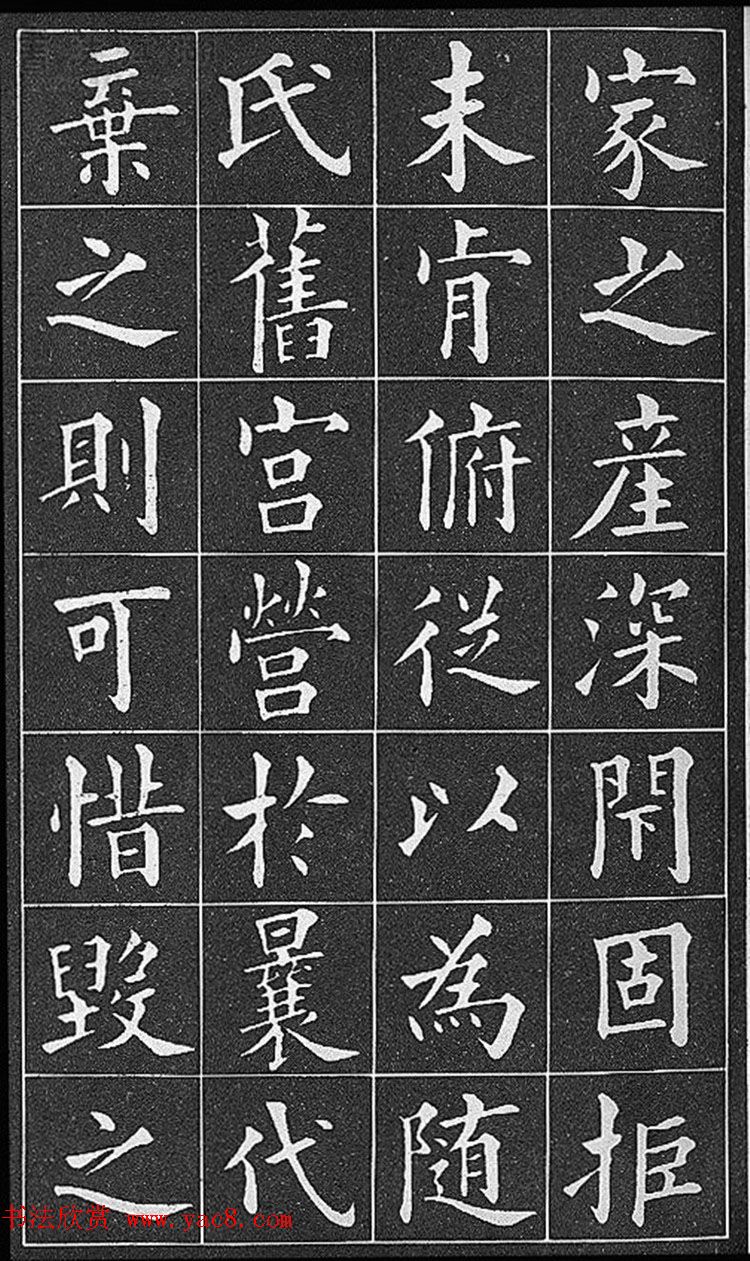 家之產深閇固拒
未肯俯從以為隨
氏舊宮營於曩代
棄之則可惜毀之
书法欣赏 www.yac8.com